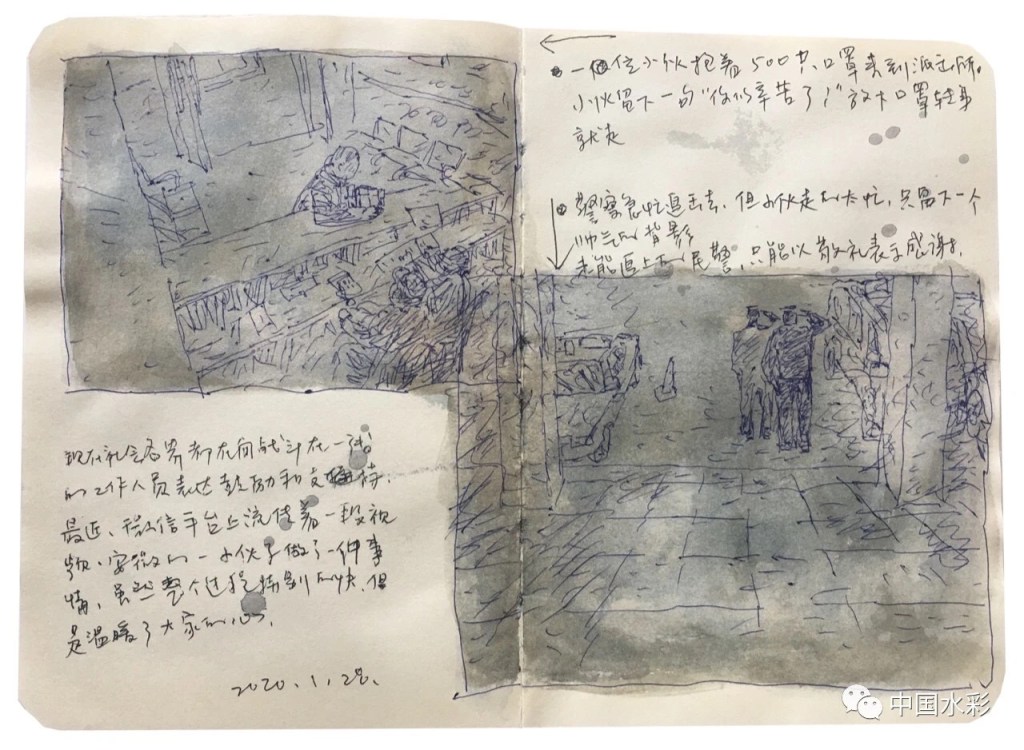 一位小伙抱着500只口罩来到派出所。
小伙留下一句“你们辛苦了!”放下口罩转身
就走
警察急忙追出去,但小伙走的太忙,只留下一个
帅气的背影
未能追上的民警,只能以敬礼表示感谢。
现在社会各界都在向战斗在一线
的工作人员表达鼓励和支持.
最近、微信平台上流传着一段视
频、安徽的一小伙子做了一件事
情,虽然整个过程特别的快,但
是温暖了大家的心.
2020.1.28.
中国水彩